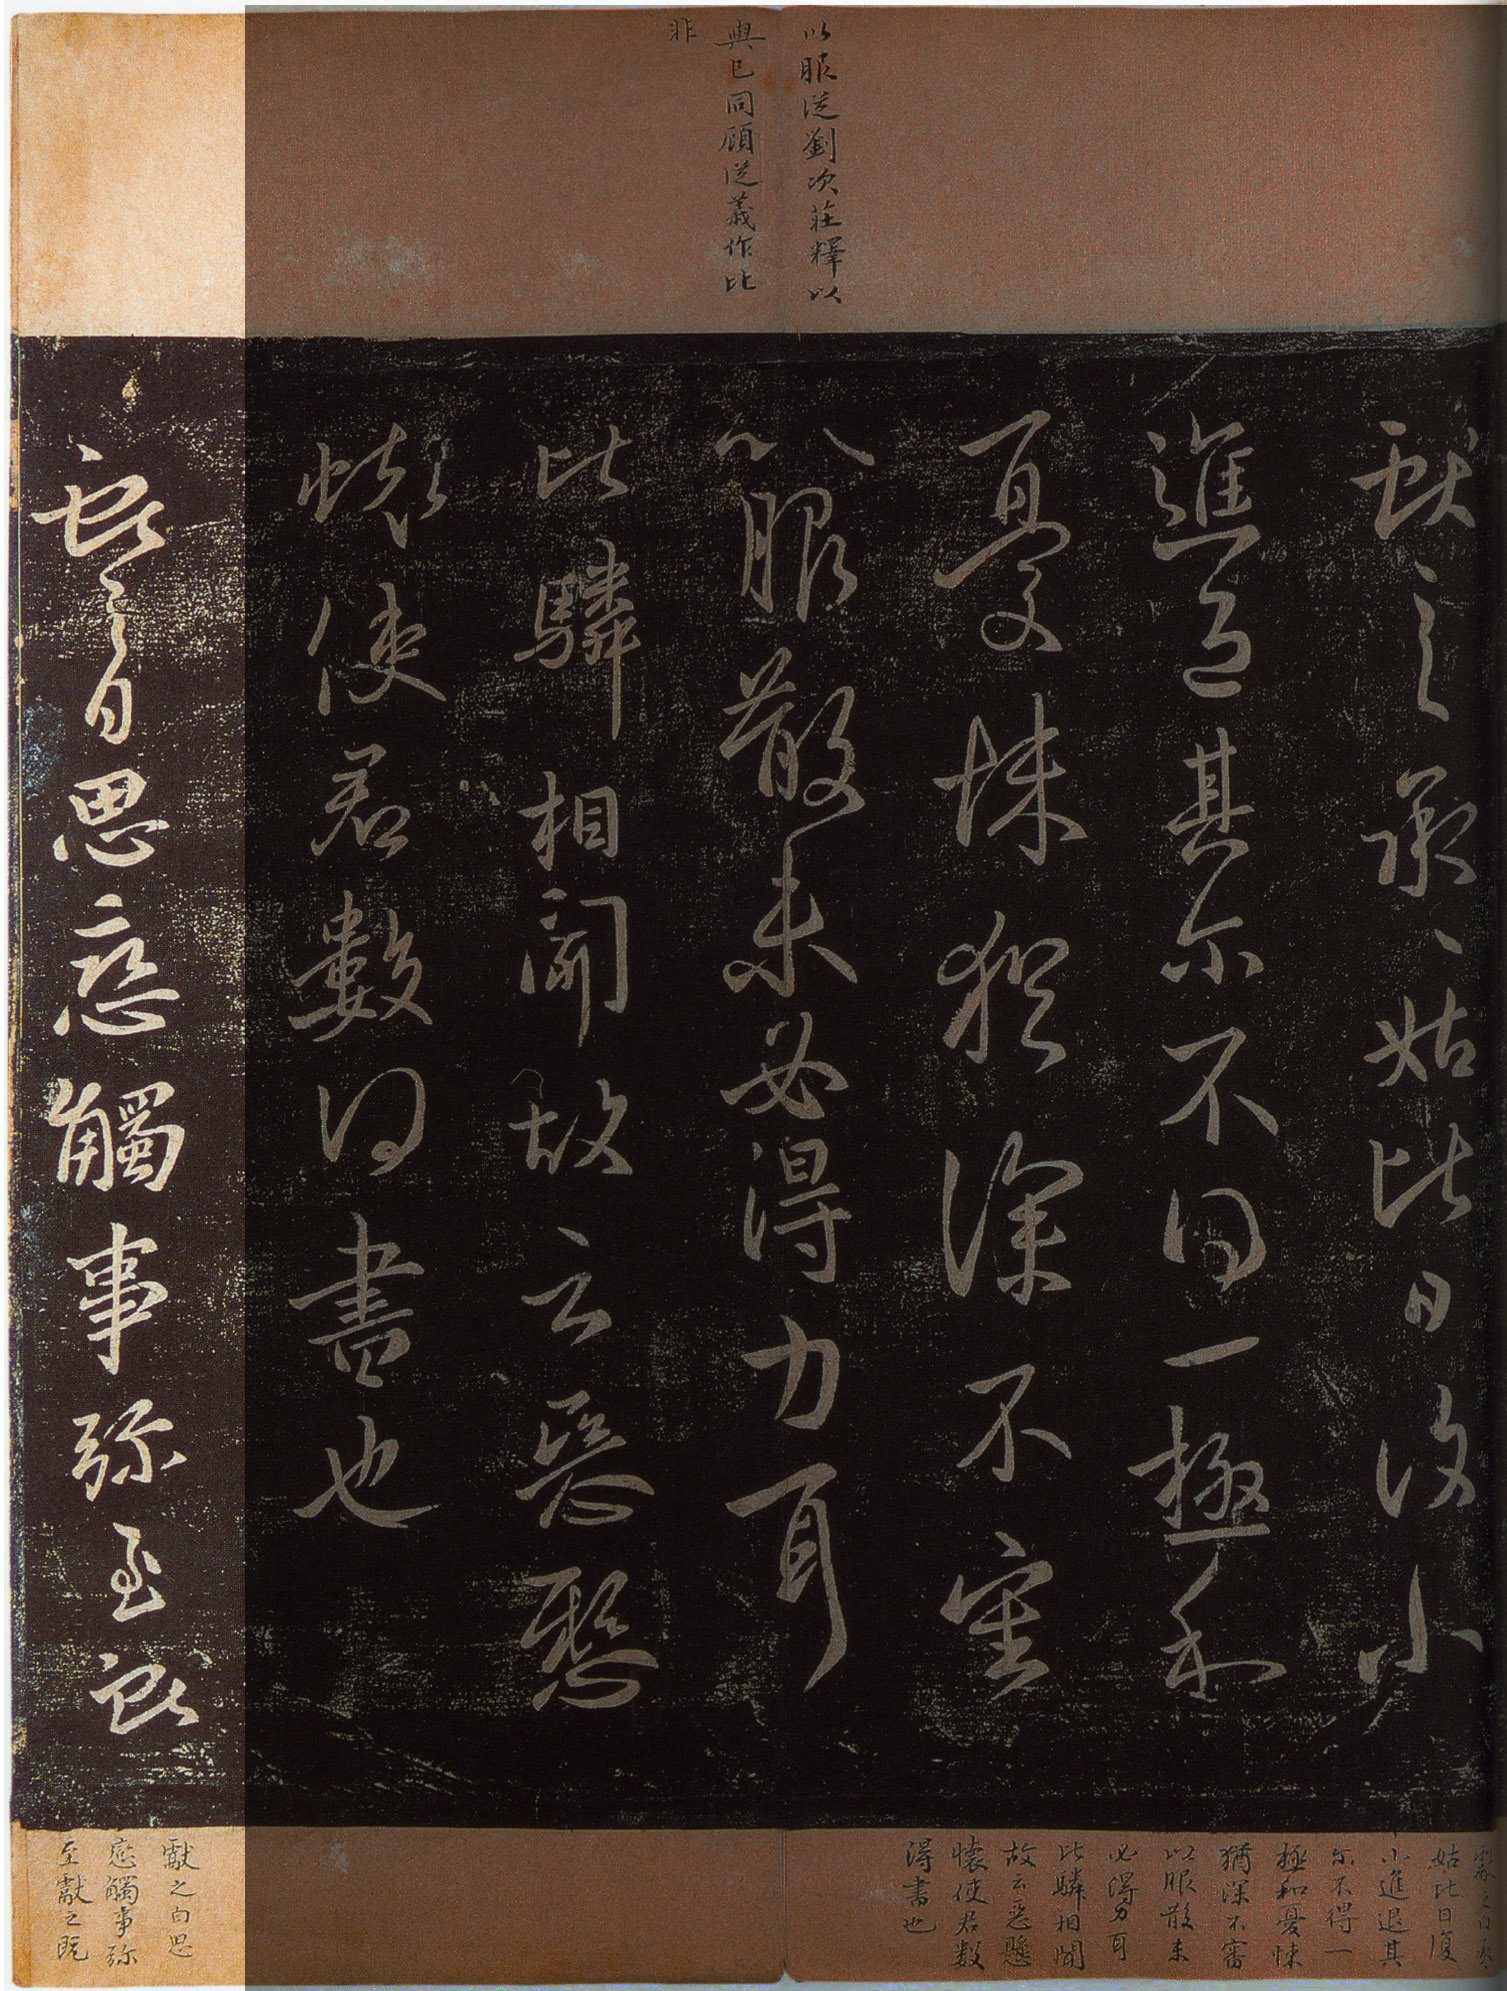 以服从劉次莊釋以
與已同顧从義作比
非
獻之承、姑比日復小
進退其尔不得一極和
憂悚猶深不審
以服散未必得力耳
比驎相聞故云惡懸
懷使君數得書也
獻之白思戀觸事弥至獻
獻之白承、
姑比日復
小進退其
尔不得一
極和憂悚
猶深不審
以服散未
必得力耳
比驎相聞
故云惡懸
懷使君数
得書也
獻之白思
戀觸事弥
至獻之既